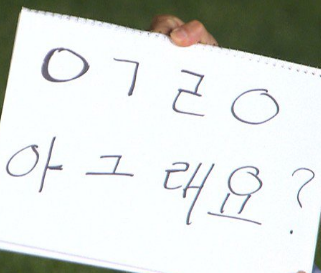 ㅇㄱㄹㅇ
아 그 래요?